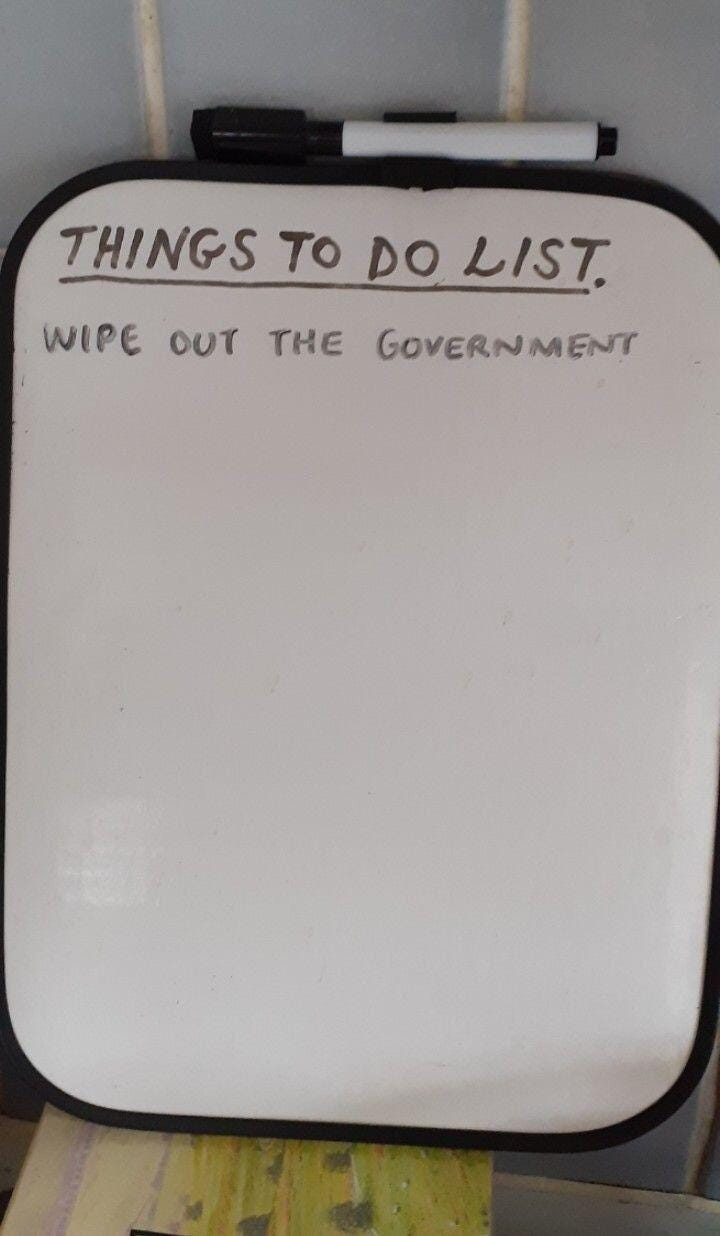 THINGS TO DO LIST.
WIPE OUT THE GOVERNMENT